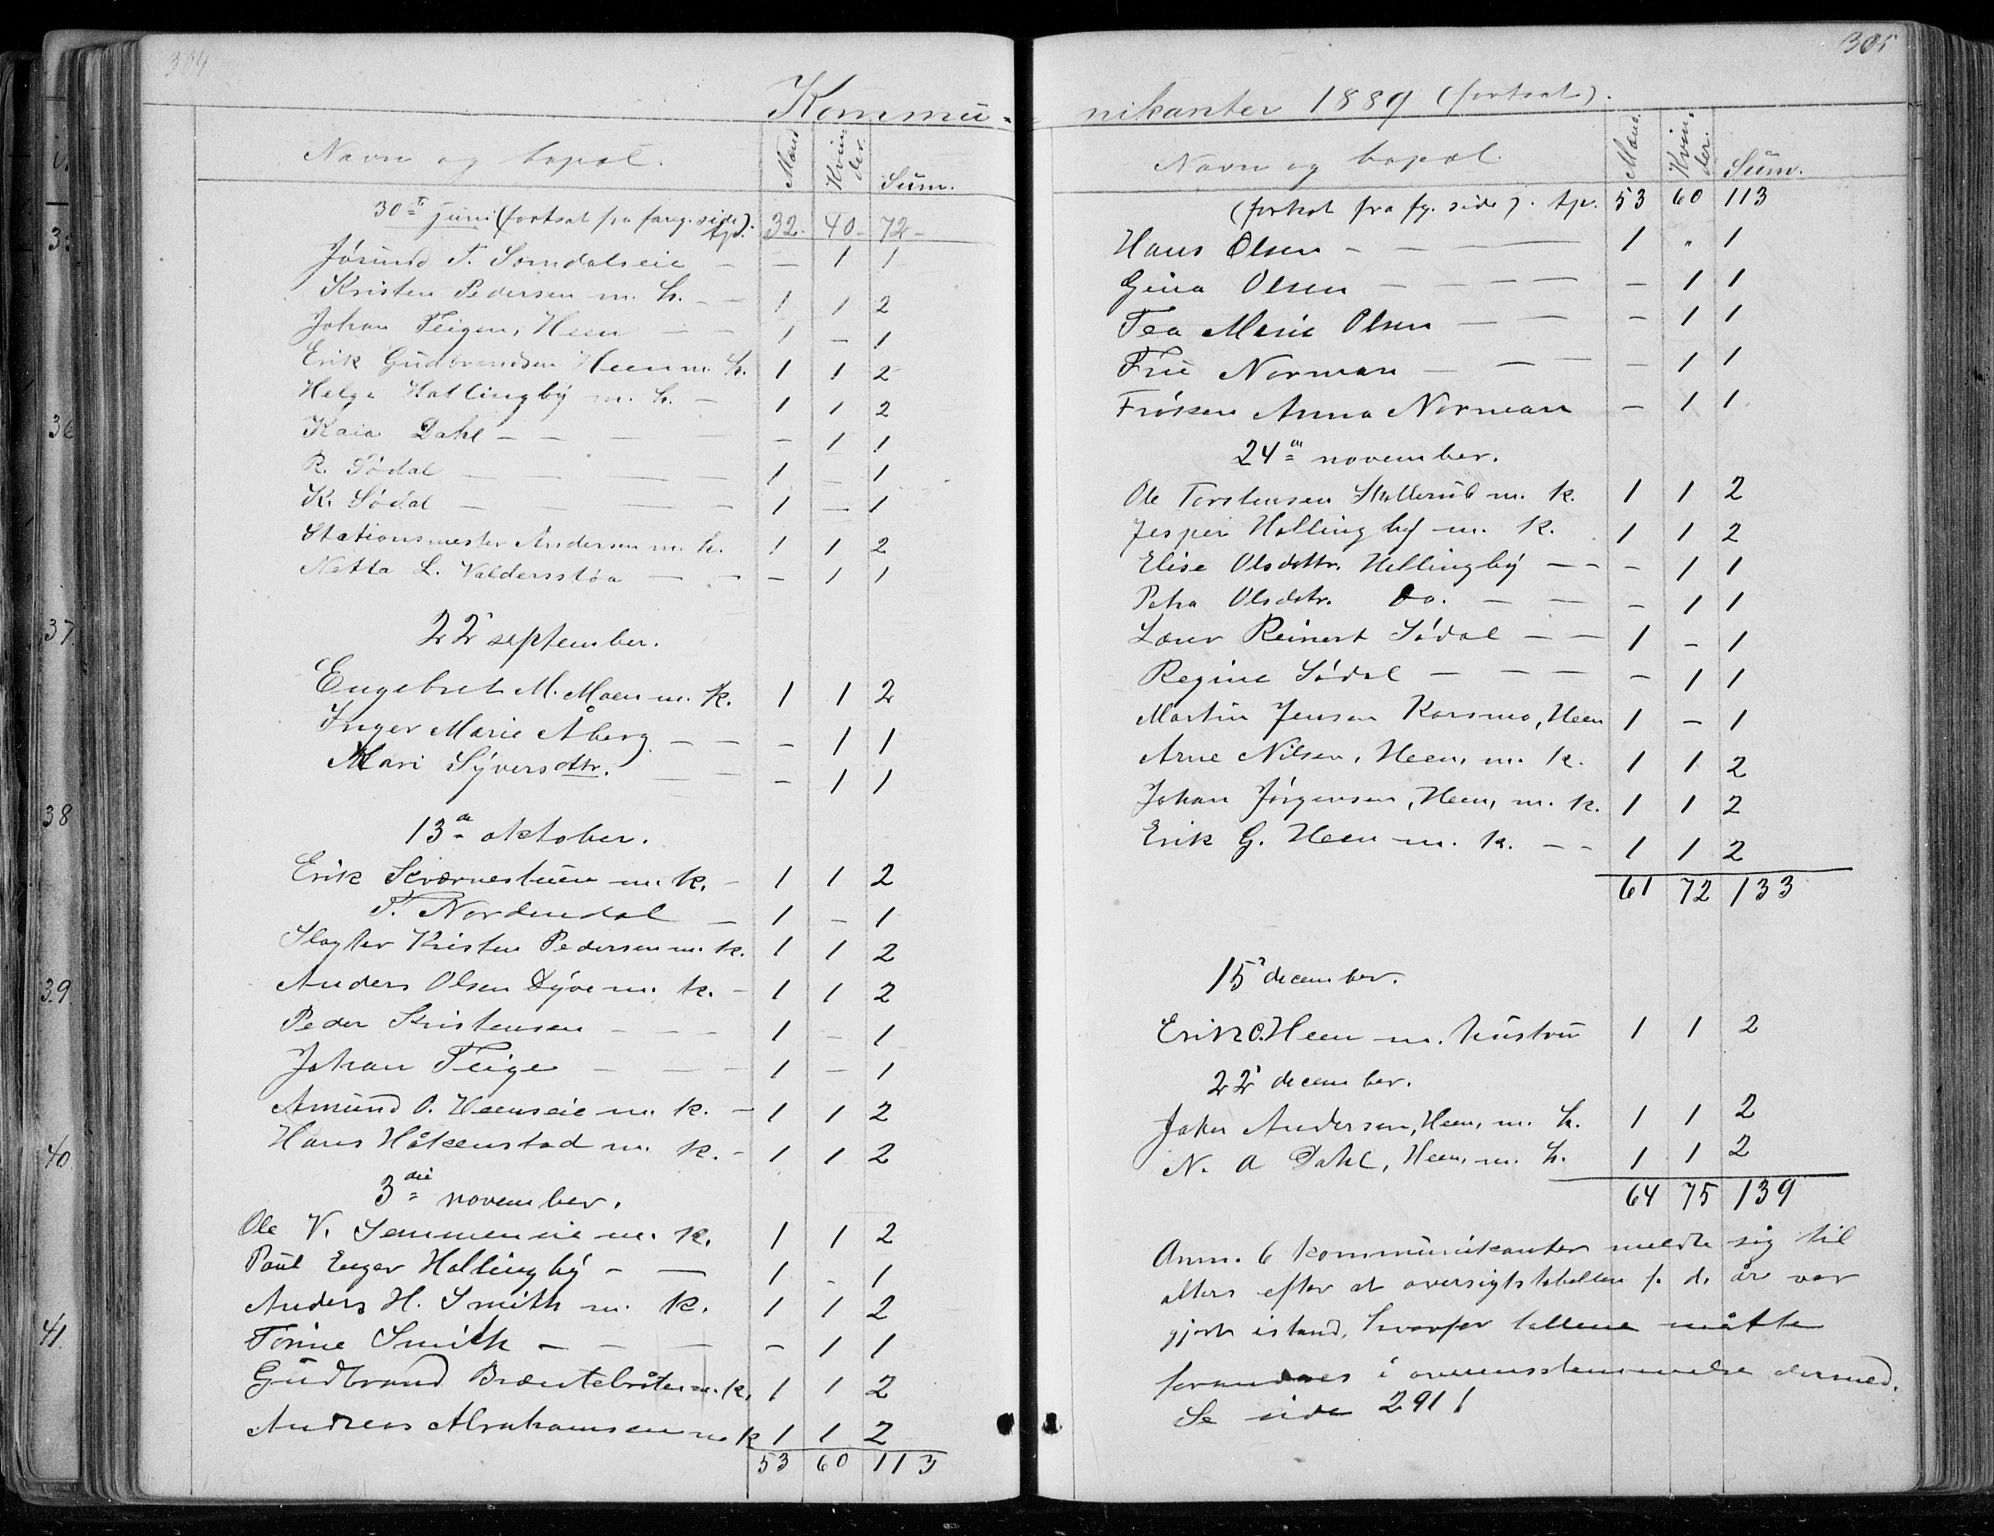 304
Kommu-
Navn og bopæl.
Mænd
Kvin-
der.
Sum.
30te juni (fortsat fra foreg. side). tp. 32 - 40 - 72 -
Jørund T. Somdalseie - - 1 1
Kristen Pedersen m. h. - - 1 1 2
Johan Teigen, Heen - - 1 - 1
Erik Gudbrandsen Heen m. h. 1 1 2
Helge Hallingby m. h. - 1 1 2
Kaia Dahl - - - - - 1 1
R. Sødal - - - 1 - 1
K. Sødal - - - - 1 - 1
Stationsmester Andersen m. h. 1 1 2
Netta L. Valdersstøa - - - 1 1
22 september.
Engebret M. Moen m. k. 1 1 2
Inger Marie Åberg - - - 1 1
Mari Syversdttr. - - - 1 1
13de oktober.
Erik Skværnestuen m. k. - 1 1 2
T. Nordendal - 1 - 1
Slagter Kristen Pedersen m. k. 1 1 2
Anders Olsen Dyve m. k. - 1 1 2
Peder Kristensen - - - 1 - 1
Johan Teige - - - 1 - 1
Amund O. Heenseie m. k. - 1 1 2
Hans Håkenstad m. k. - 1 1 2
3die november.
Ole V. Semmeneie m. k. 1 1 2
Paul Enger Hallingby - - 1 - 1
Anders H. Smith m. k. 1 1 2
Torine Smith - - - - 1 1
Gudbrand Bræntebråten m. k. 1 1 2
Andreas Abrahamsen m k 1 1 2
53 60 113
305
nikanter 1889 (fortsat).
Navn og bopæl.
Mænd.
Kvin-
der.
Sum.
(fortsat fra fg. side). tp. 53 60 113
Hans Olsen - - - - 1 " 1
Gina Olsen - - - - - 1 1
Tea Marie Olsen - - - 1 1
Frue Norman - - - - 1 1
Frøken Anna Norman - 1 1
24de november.
Ole Torstensen Skollerud m. k. 1 1 2
Jesper Hallingby m. k. 1 1 2
Elise Olsdattr. Hallingby - - - 1 1
Petra Olsdatr. Do. - - - 1 1
Laur Reinert Sødal - - 1 - 1
Regine Sødal - - - - - 1 1
Martin Jensen Karsmo, Heen 1 - 1
Arne Nilsen, Heen, m. k. 1 1 2
Johan Jørgensen, Heen, m. k. 1 1 2
Erik G. Heen m. k. - - 1 1 2
61 72 133
15 december.
Erik O. Heen m. hustru 1 1 2
22 december.
Johan Andersen, Heen, m. h. 1 1 2
N. A Dahl, Heen, m. h. 1 1 2
64 75 139
Anm. 6 kommunikanter meldte sig til
alters efter at oversigtstabellen f. d. år var
gjort istand, hvorfor tallene måtte
forandres i overensstemmelse dermed.
Se side 291!
35
36
37.
38
39.
40.
41.